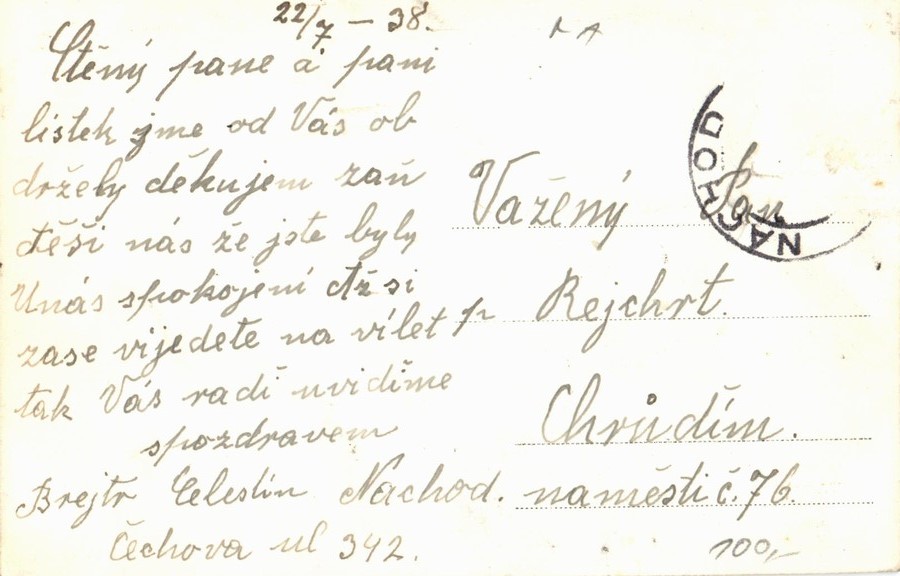 22/7 - 38.
Ctěný pane a paní
lístek jme od Vás ob
drželi děkujem zaň
těší nás že jste byly
Unás spokojení Až si
zase vijedete na vílet
tak Vás radi uvidíme
spozdravem
Brejtr Celestín Náchod.
Čechova ul 342.
NÁCHOD
Važený Pan
p Rejchrt.
Chrůdím.
naměsti č. 76.
100,-